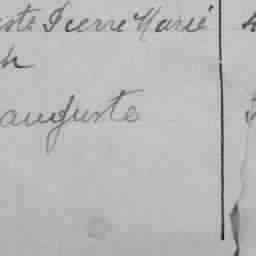 Pierre Marie
h
auguste